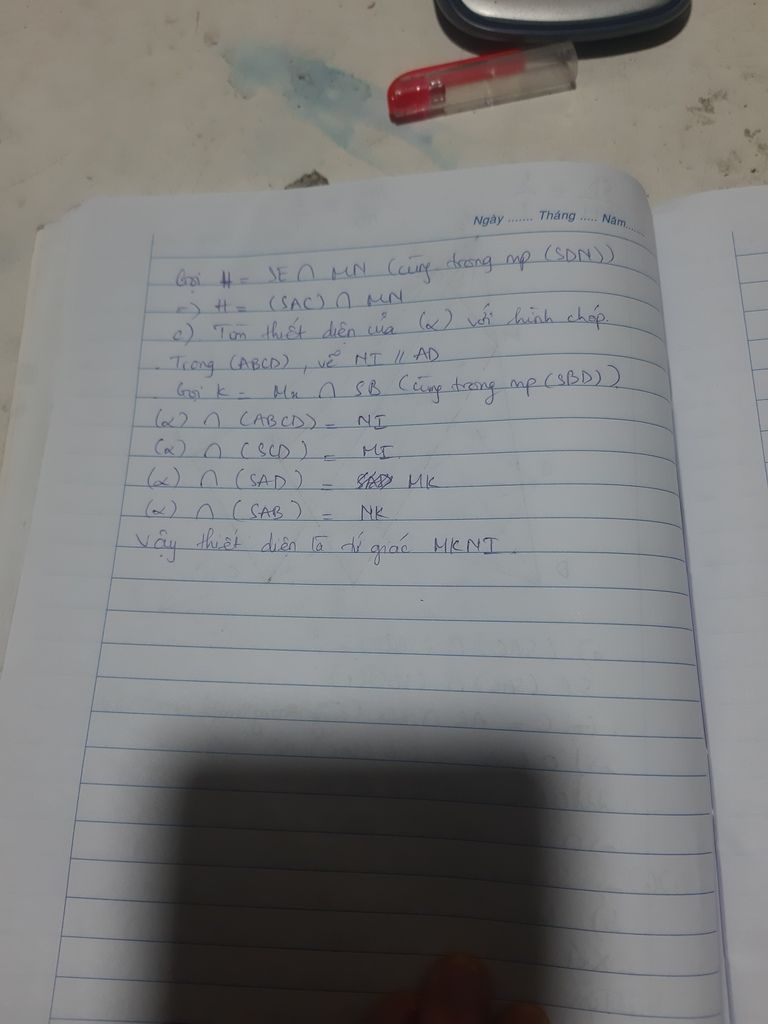 Ngày ....... Tháng ..... Năm.....
Gọi H = SE ∩ MN (cùng trong mp (SDN))
=> H = (SAC) ∩ MN
c) Tìm thiết diện của (α) với hình chóp.
. Trong (ABCD), vẽ NI // AD
. Gọi K = Mx ∩ SB (cùng trong mp (SBD))
(α) ∩ (ABCD) = NI
(α) ∩ (SCD) = MI
(α) ∩ (SAD) = MK
(α) ∩ (SAB) = NK
Vậy thiết diện là tứ giác MKNI.